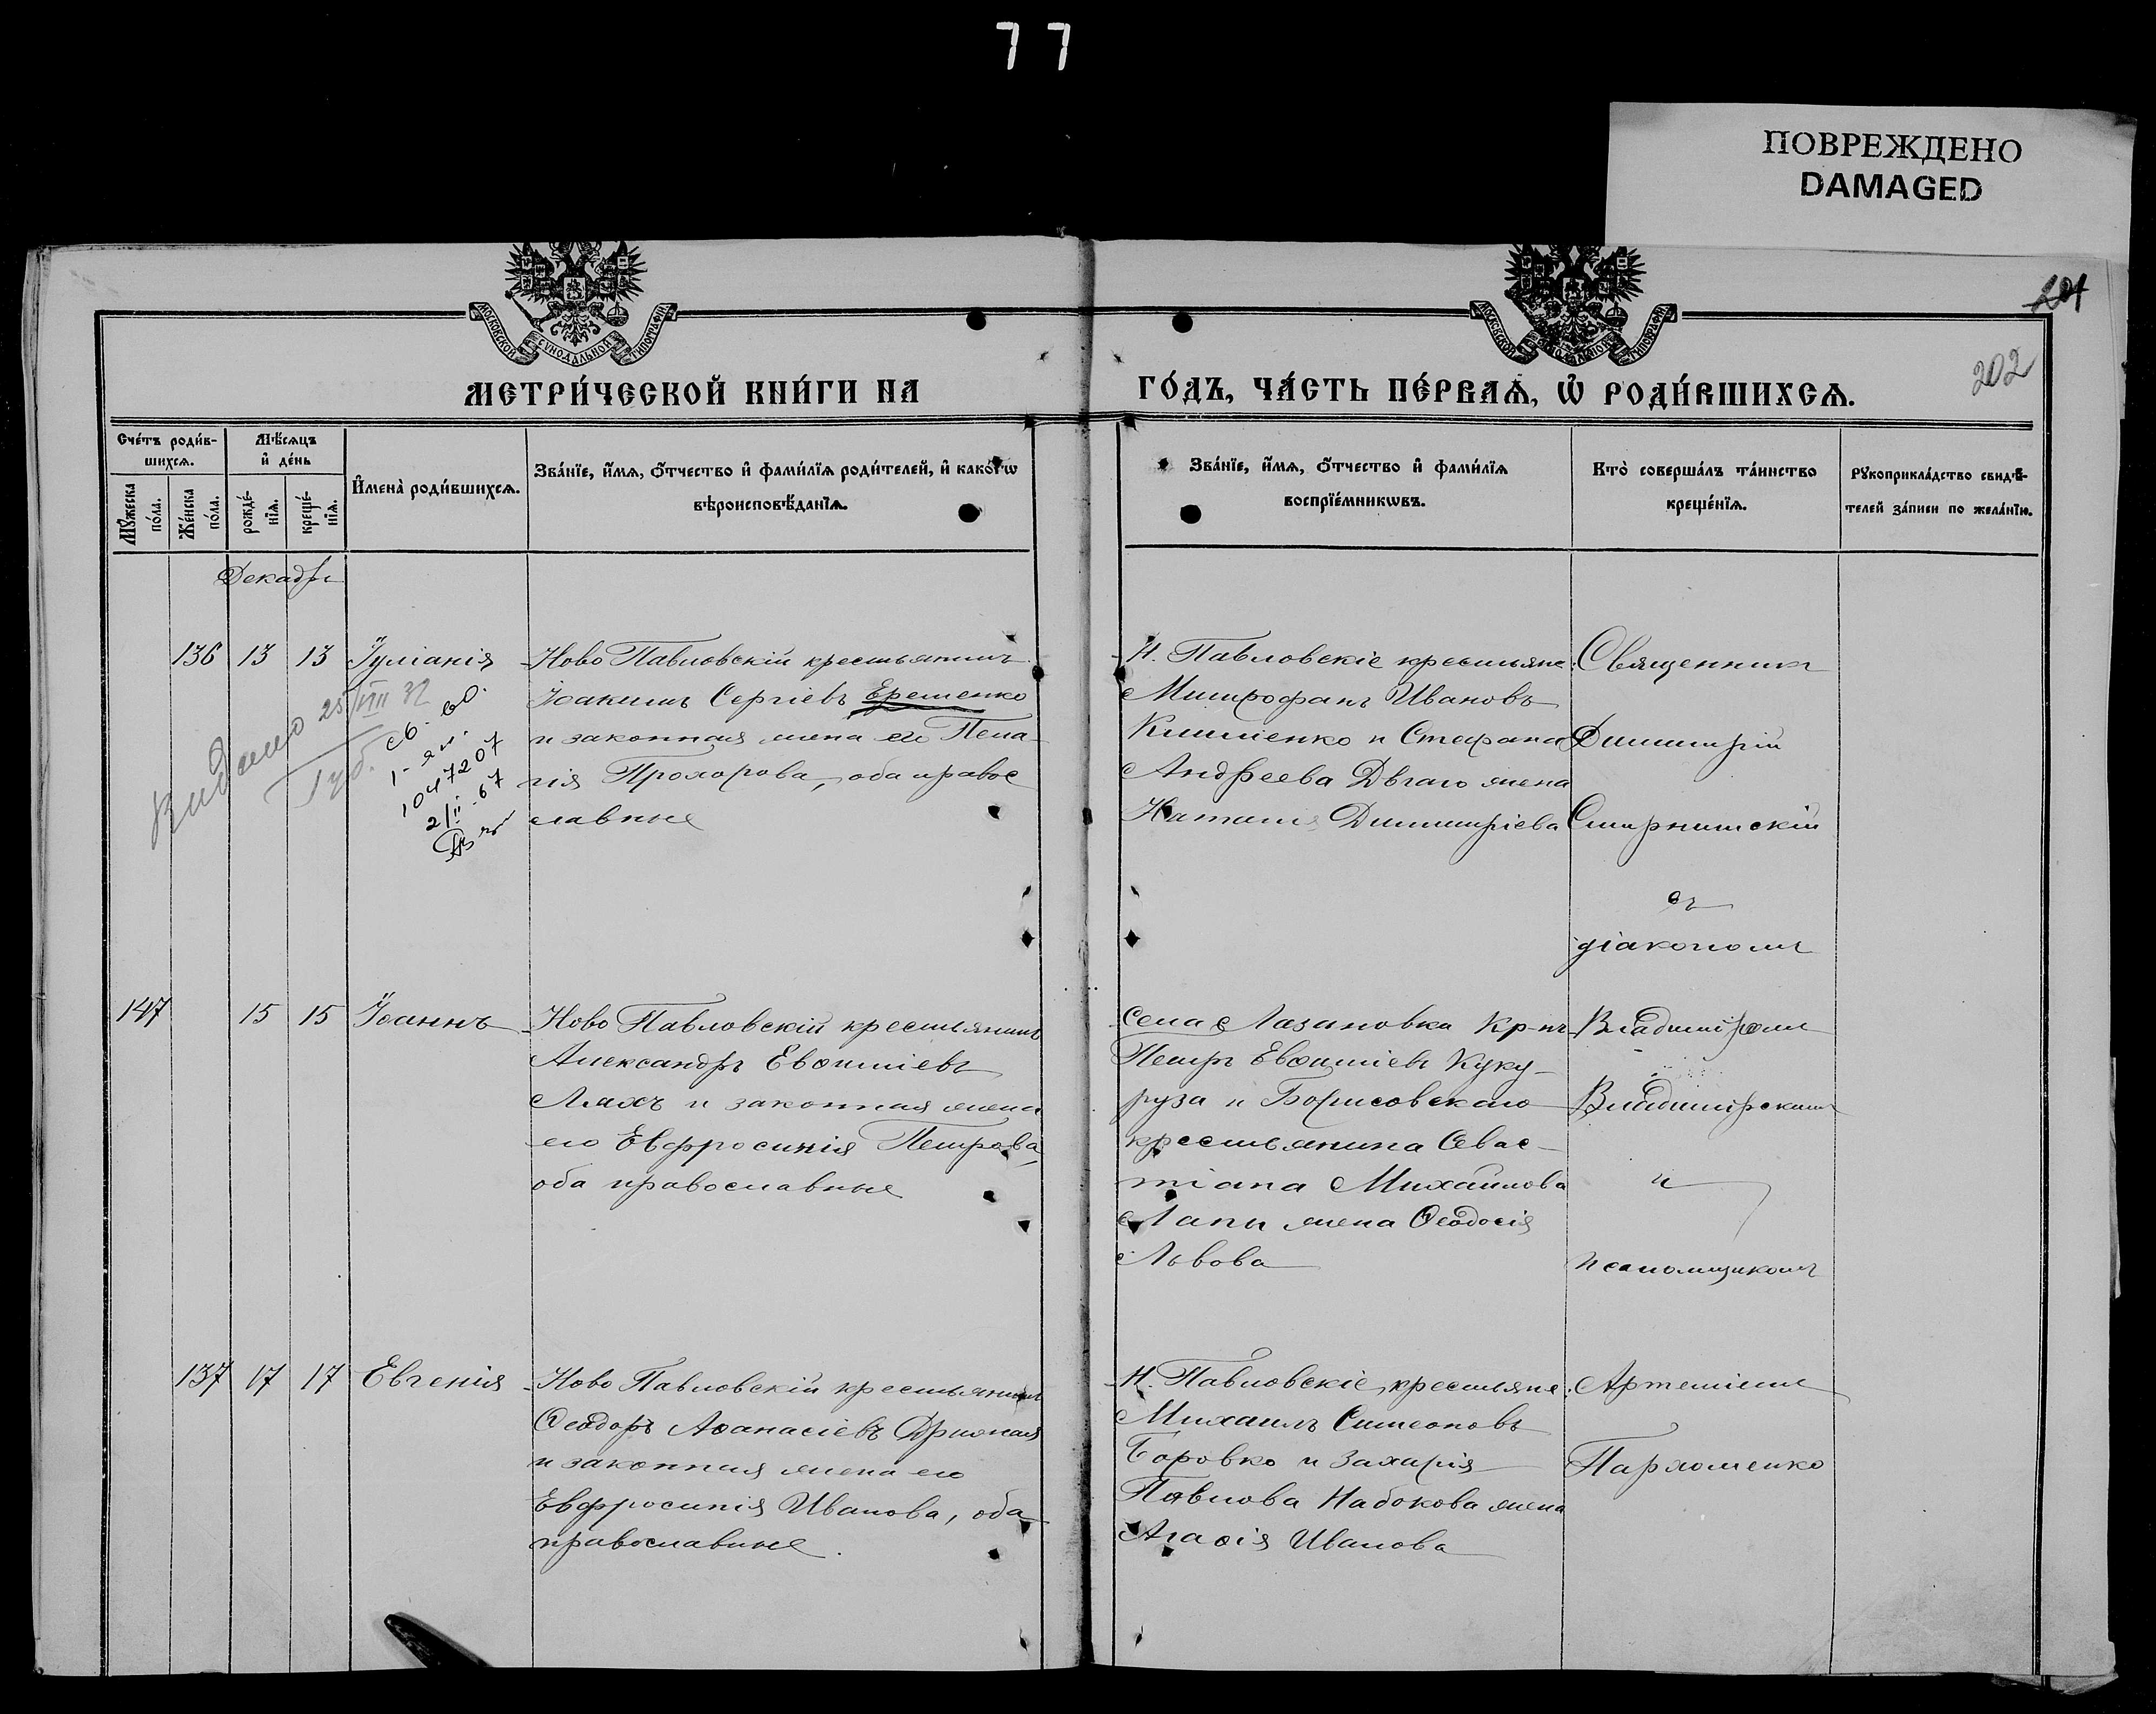 77
ПОВРЕЖДЕНО
DAMAGED
МОСКОВСКОЙ СѴНОДАЛЬНОЙ ТИПОГРАФІИ
МОСКОВСКОЙ СѴНОДАЛЬНОЙ ТИПОГРАФІИ
201
202
МЕТРИ́ЧЕСКОЙ КНИ́ГИ НА
ГО́ДЪ, ЧА́СТЬ ПЕ́РВАѦ, Ѡ҆ РОДИ́ВШИХСѦ.
Сче́тъ роди́в-
шихсѧ.
Мꙋ́жеска
по́ла.
Же́нска
по́ла.
Мѣ́сѧцъ
и҆ де́нь
рожде́-
нїѧ.
креще́-
нїѧ.
И҆мена̀ роди́вшихсѧ.
Зва́нїе, и҆́мѧ, ѻ҆́тчество и҆ фами́лїѧ роди́телей, и҆ како́гѡ
вѣроисповѣ́данїѧ.
Зва́нїе, и҆́мѧ, ѻ҆́тчество и҆ фами́лїѧ
воспрїе́мникѡвъ.
Кто̀ соверша́лъ та́инство
креще́нїѧ.
Рꙋкоприкла́дство свидѣ́-
телей за́писи по жела́нїю.
Декабрь
136 13 13 Іуліанія
Ново Павловскій крестьянинъ
Іоакимъ Сергіевъ Еременко
и законная жена его Пела-
гія Прохорова, оба право
славные
Н. Павловскіе крестьяне:
Митрофанъ Ивановъ
Клименко и Стефана
Андреева Дѣгаго жена
Наталія Димитріева
Священникъ
Димитрій
Смирнитскій
съ
діакономъ
Видано 25/VIII 32
Губ.
св. во.
1-ял.
1047207
2/II-67
147 15 15 Іоаннъ
Ново Павловскій крестьянинъ
Александръ Евѳиміевъ
Ляхъ и законная жена
его Евфросинія Петрова,
оба православные
Села Лазановка Кр-нъ
Петръ Евѳиміевъ Куку-
руза и Борисовскаго
крестьянина Севас-
тіана Михайлова
Лапы жена Ѳеодосія
Львова
Владиміромъ
Владимірскимъ
и
псаломщикомъ
137 17 17 Евгенія
Ново Павловскій крестьянинъ
Ѳеодоръ Аѳанасіевъ
и законная жена его
Евфросинія Иванова, оба
православные.
Н. Павловскіе крестьяне:
Михаилъ Симеоновъ
Боровко и Захарія
Павлова Набокова жена
Агаѳія Иванова
Артеміемъ
Пархоменко